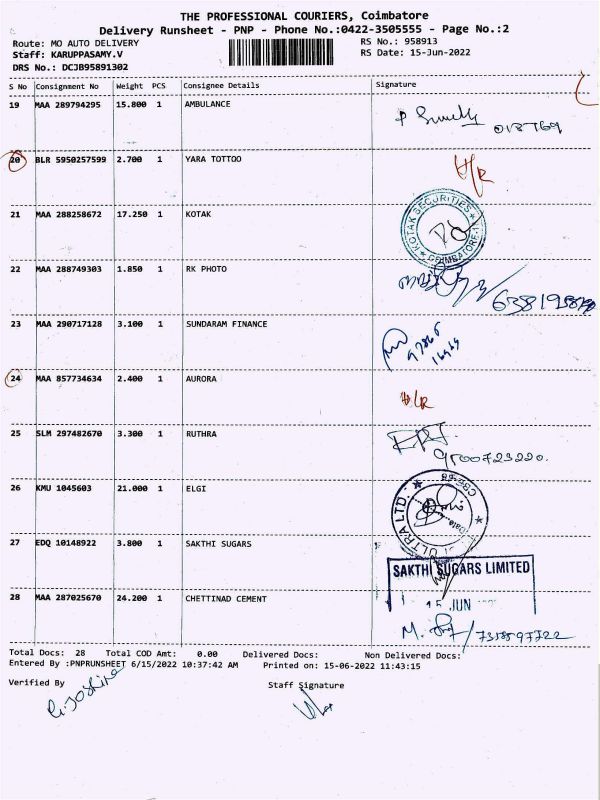 THE PROFESSIONAL COURIERS, Coimbatore
Delivery Runsheet - PNP - Phone No.:0422-3505555 - Page No.:2
Route: MO AUTO DELIVERY
RS No.: 958913
Staff: KARUPPASAMY.V
RS Date: 15-Jun-2022
DRS No.: DCJB95891302
S No Consignment No Weight PCS Consignee Details Signature
19 MAA 289794295 15.800 1 AMBULANCE
20 BLR 5950257599 2.700 1 YARA TOTTOO
21 MAA 288258672 17.250 1 KOTAK
KOTAK SECURITIES
COIMBATORE
22 MAA 288749303 1.850 1 RK PHOTO
23 MAA 290717128 3.100 1 SUNDARAM FINANCE
24 MAA 857734634 2.400 1 AURORA
25 SLM 297482670 3.300 1 RUTHRA
9500723220.
26 KMU 1045603 21.000 1 ELGI
ULTRA LTD.
27 EDQ 10148922 3.800 1 SAKTHI SUGARS
SAKTHI SUGARS LIMITED
15 JUN
28 MAA 287025670 24.200 1 CHETTINAD CEMENT
7358597722
Total Docs: 28 Total COD Amt: 0.00 Delivered Docs: Non Delivered Docs:
Entered By :PNPRUNSHEET 6/15/2022 10:37:42 AM Printed on: 15-06-2022 11:43:15
Verified By Staff Signature